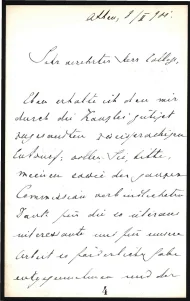 Athen, 8/II 901.
Sehr verehrter Herr College,
Eben erhalte ich den mir
durch die Kanzlei gütigst
zugesandten
Entwurf; wollen Sie, bitte,
meinen sowie der ganzen
Commission verbindlichsten
Dank für die so überaus
interessante und für unsere
Arbeit so förderliche Gabe
entgegennehmen und der